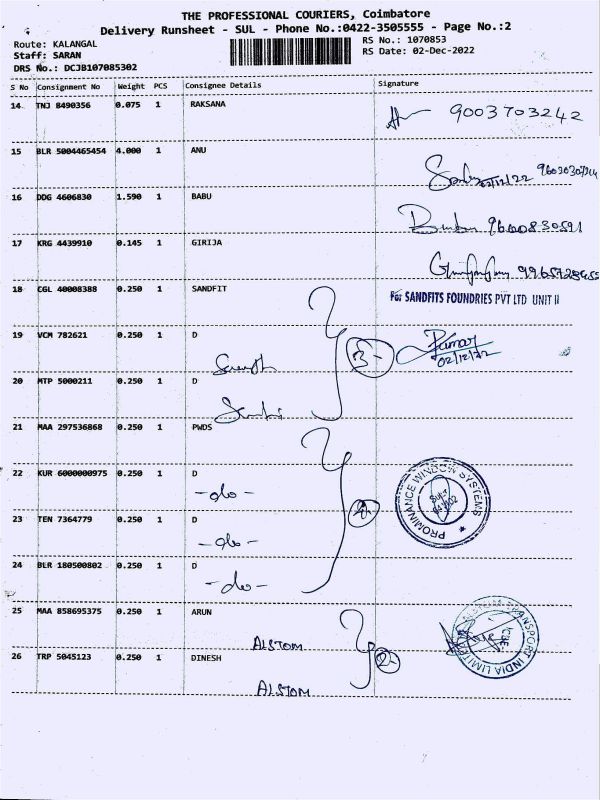 THE PROFESSIONAL COURIERS, Coimbatore
Delivery Runsheet - SUL - Phone No.:0422-3505555 - Page No.:2
Route: KALANGAL
Staff: SARAN
DRS No.: DCJB107085302
RS No.: 1070853
RS Date: 02-Dec-2022
S No Consignment No Weight PCS Consignee Details Signature
14 TNJ 8490356 0.075 1 RAKSANA 9003703242
15 BLR 5004465454 4.000 1 ANU
02/12/22
16 DDG 4606830 1.590 1 BABU
9600830591
17 KRG 4439910 0.145 1 GIRIJA
18 CGL 40008388 0.250 1 SANDFIT
For SANDFITS FOUNDRIES PVT LTD UNIT II
19 VCM 782621 0.250 1 D
3-
Kumar
02/12/22
20 MTP 5000211 0.250 1 D
21 MAA 297536868 0.250 1 PWDS
22 KUR 6000000975 0.250 1 D
-do-
PROMINANCE WINDOW SYSTEMS
4-
23 TEN 7364779 0.250 1 D
-do-
24 BLR 180500802 0.250 1 D
-do-
25 MAA 858695375 0.250 1 ARUN
ALSTOM
ALSTOM TRANSPORT INDIA LIMITED
26 TRP 5045123 0.250 1 DINESH
2-
ALSTOM